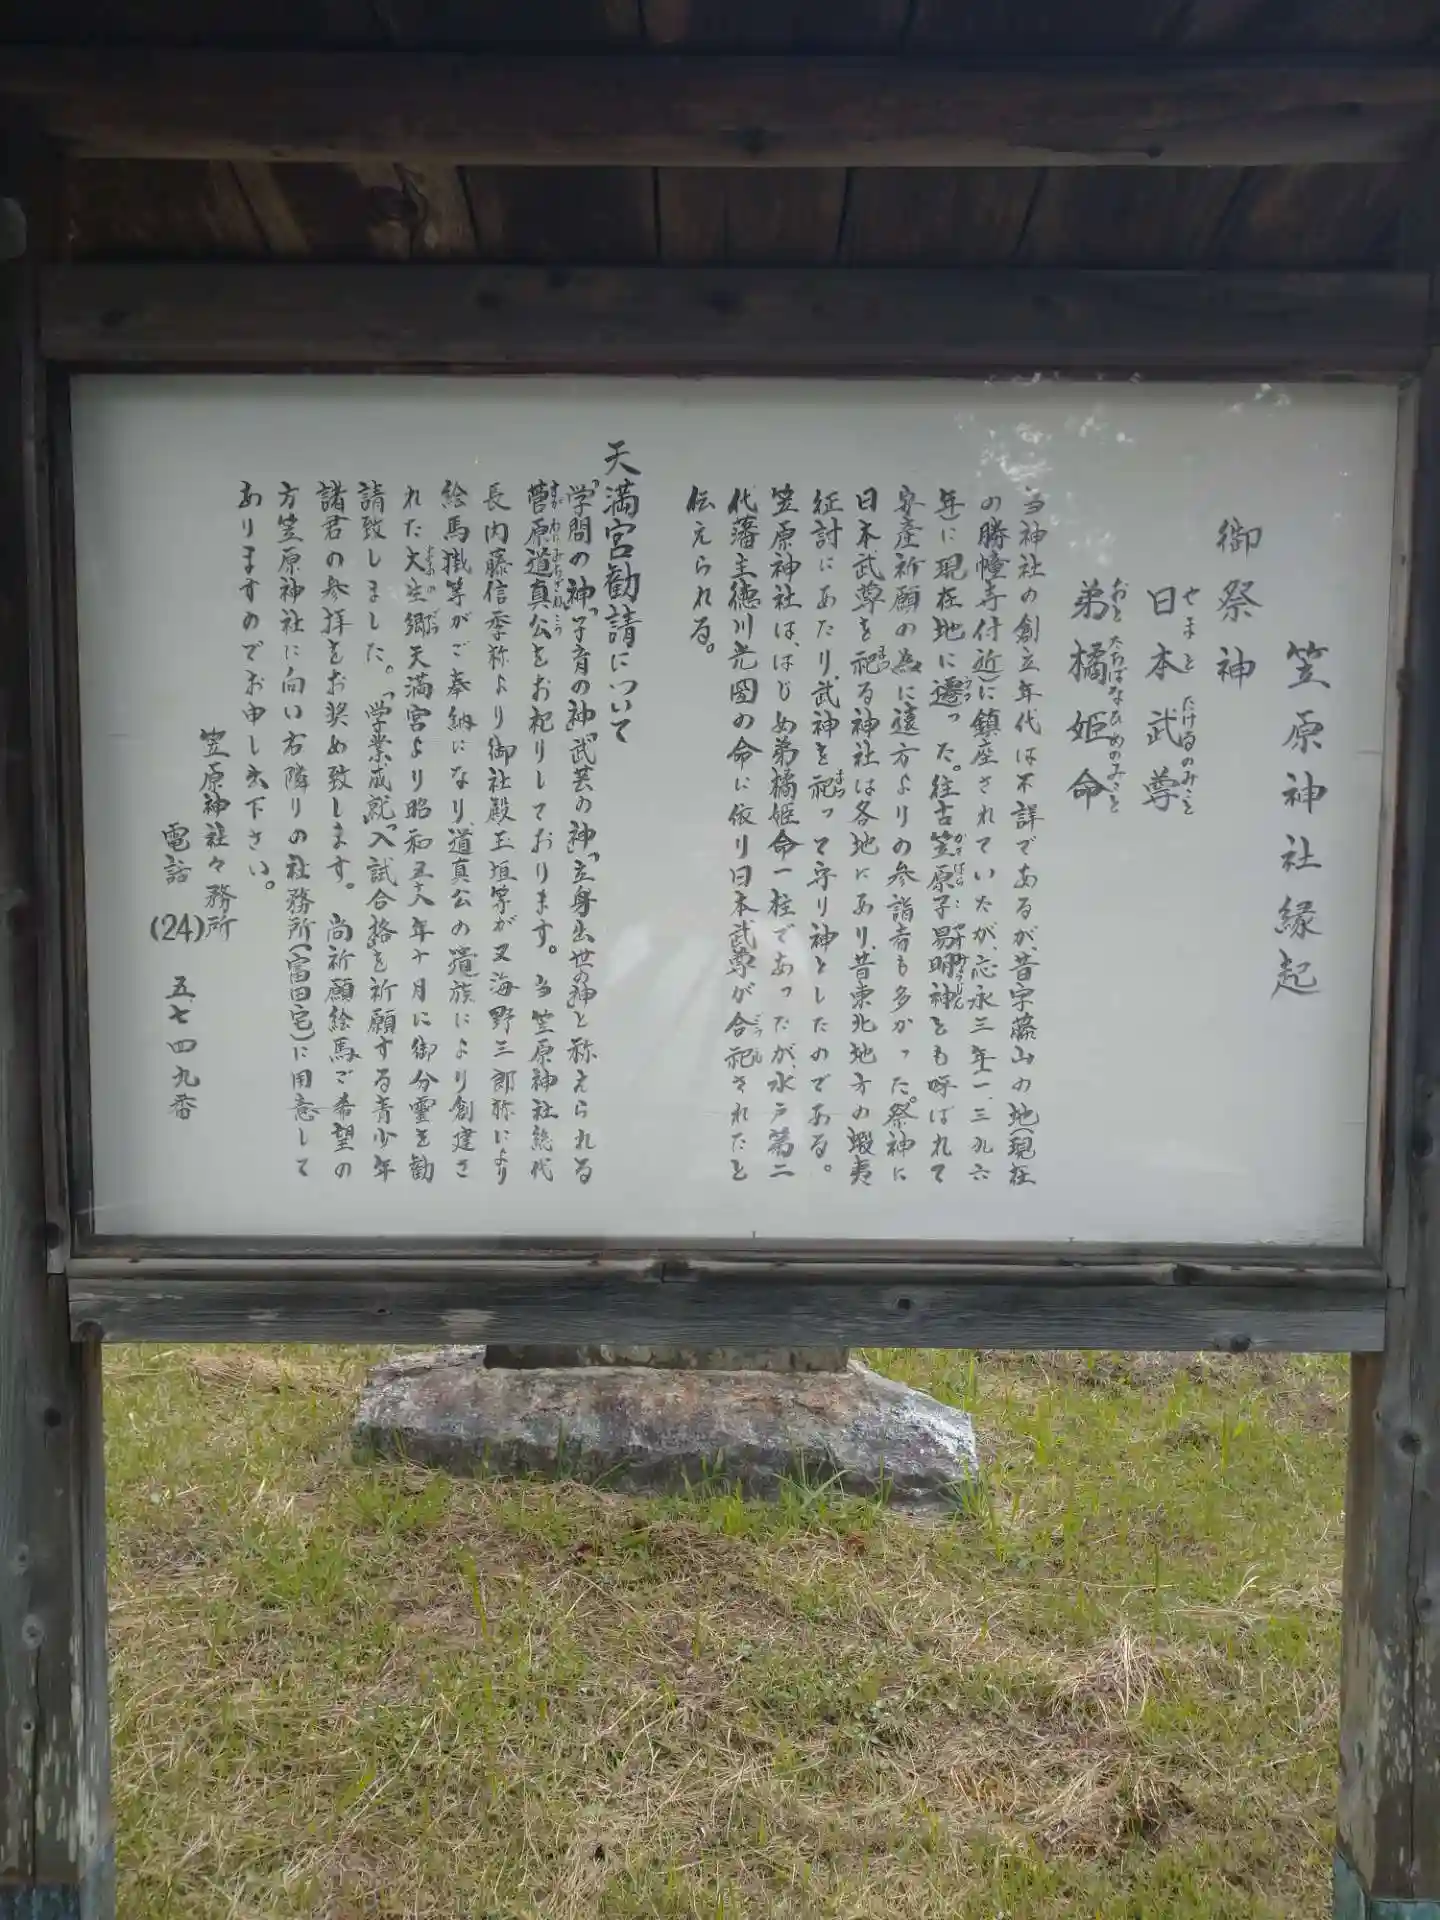 笠原神社縁起
御祭神
日本武尊
やまと たけるのみこと
弟橘姫命
おと たちばなひめのみこと
当神社の創立年代は不詳であるが、昔字藤山の地(現在
の勝幢寺付近)に鎮座されていたが、応永三年(一、三九六
年)に現在地に遷った。往古笠原子易明神とも呼ばれて
安産祈願の為に遠方よりの参詣者も多かった。祭神に
日本武尊を祀る神社は各地にあり、昔東北地方の蝦夷
征討にあたり、武神を祀って守り神としたのである。
笠原神社は、はじめ弟橘姫命一柱であったが、水戸第二
代藩主徳川光圀の命に依り日本武尊が合祀されたと
伝えられる。
天満宮勧請について
「学問の神」「子育の神」「武芸の神」「立身出世の神」と称えられる
菅原道真公をお祀りしております。当笠原神社総代
長内藤信季称より御社殿玉垣等が又海野三郎称により
絵馬掛等がご奉納になり、道真公の遺族により創建さ
れた大生郷天満宮より昭和五八年十月に御分霊を勧
請致しました。「学業成就」「入試合格」を祈願する青少年
諸君の参拝をお奨め致します。尚祈願絵馬ご希望の
方笠原神社に向い右隣りの社務所(富田宅)に用意して
ありますのでお申し出下さい。
笠原神社々務所
電話(24)五七四九番